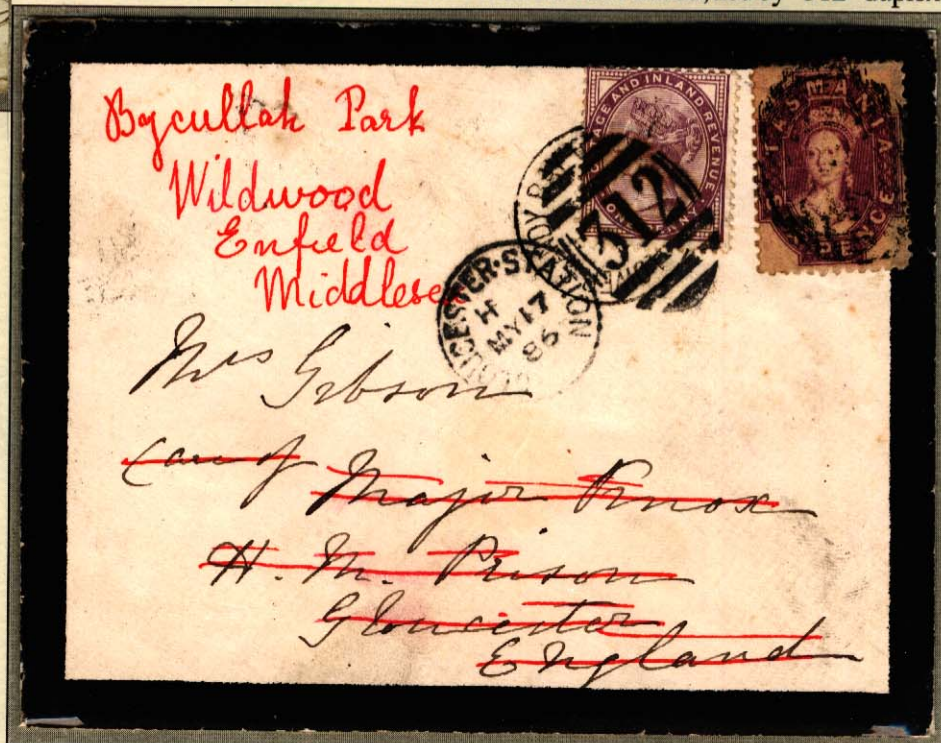 Bycullah Park
Wildwood
Enfield
Middlesex
AND INLAND REVENUE
TASMANIA
PENCE
312
GLOUCESTER·STATION
H
MY 17
86
Mrs Gibson
Care of Major Knox
H. M. Prison
Gloucester
England